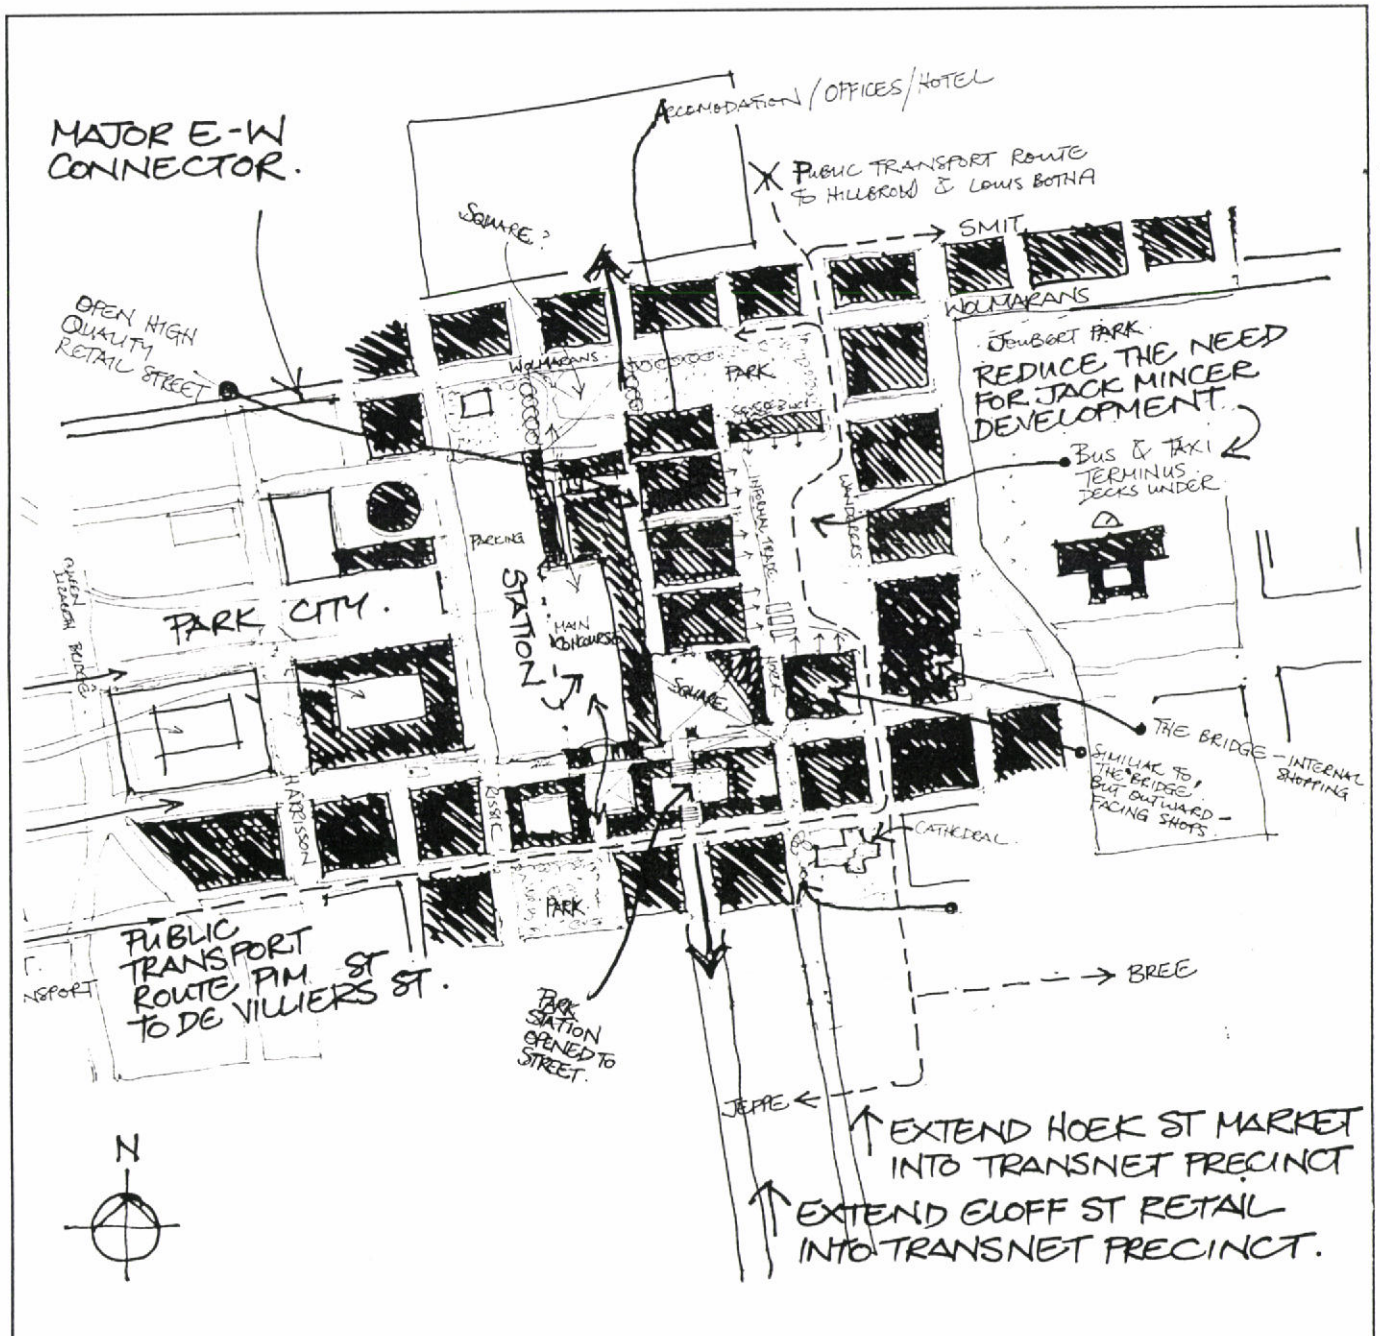 MAJOR E-W
CONNECTOR.
ACCOMODATION/OFFICES/HOTEL
PUBLIC TRANSPORT ROUTE
TO HILLBROW & LOUIS BOTHA
SQUARE?
SMIT
WOLMARANS
OPEN HIGH
QUALITY
RETAIL STREET
WOLMARANS
PARK
JOUBERT PARK.
REDUCE THE NEED
FOR JACK MINCER
DEVELOPMENT
BUS & TAXI
TERMINUS.
DECKS UNDER
INFORMAL TRADE
WANDERERS
PARKING
STATION
MAIN
CONCOURSE
QUEEN
ELIZABETH BRIDGE
PARK CITY.
SQUARE
NOORD
THE BRIDGE - INTERNAL
SHOPPING
SIMILAR TO,
'THE BRIDGE,'
BUT OUTWARD-
FACING SHOPS.
HARRISON
RISSIC
CATHEDRAL
PARK
PUBLIC
TRANSPORT
ROUTE PIM ST
TO DE VILLIERS ST.
NSPORT
PARK
STATION
OPENED TO
STREET.
BREE
JEPPE
EXTEND HOEK ST MARKET
INTO TRANSNET PRECINCT
EXTEND ELOFF ST RETAIL
INTO TRANSNET PRECINCT.
N